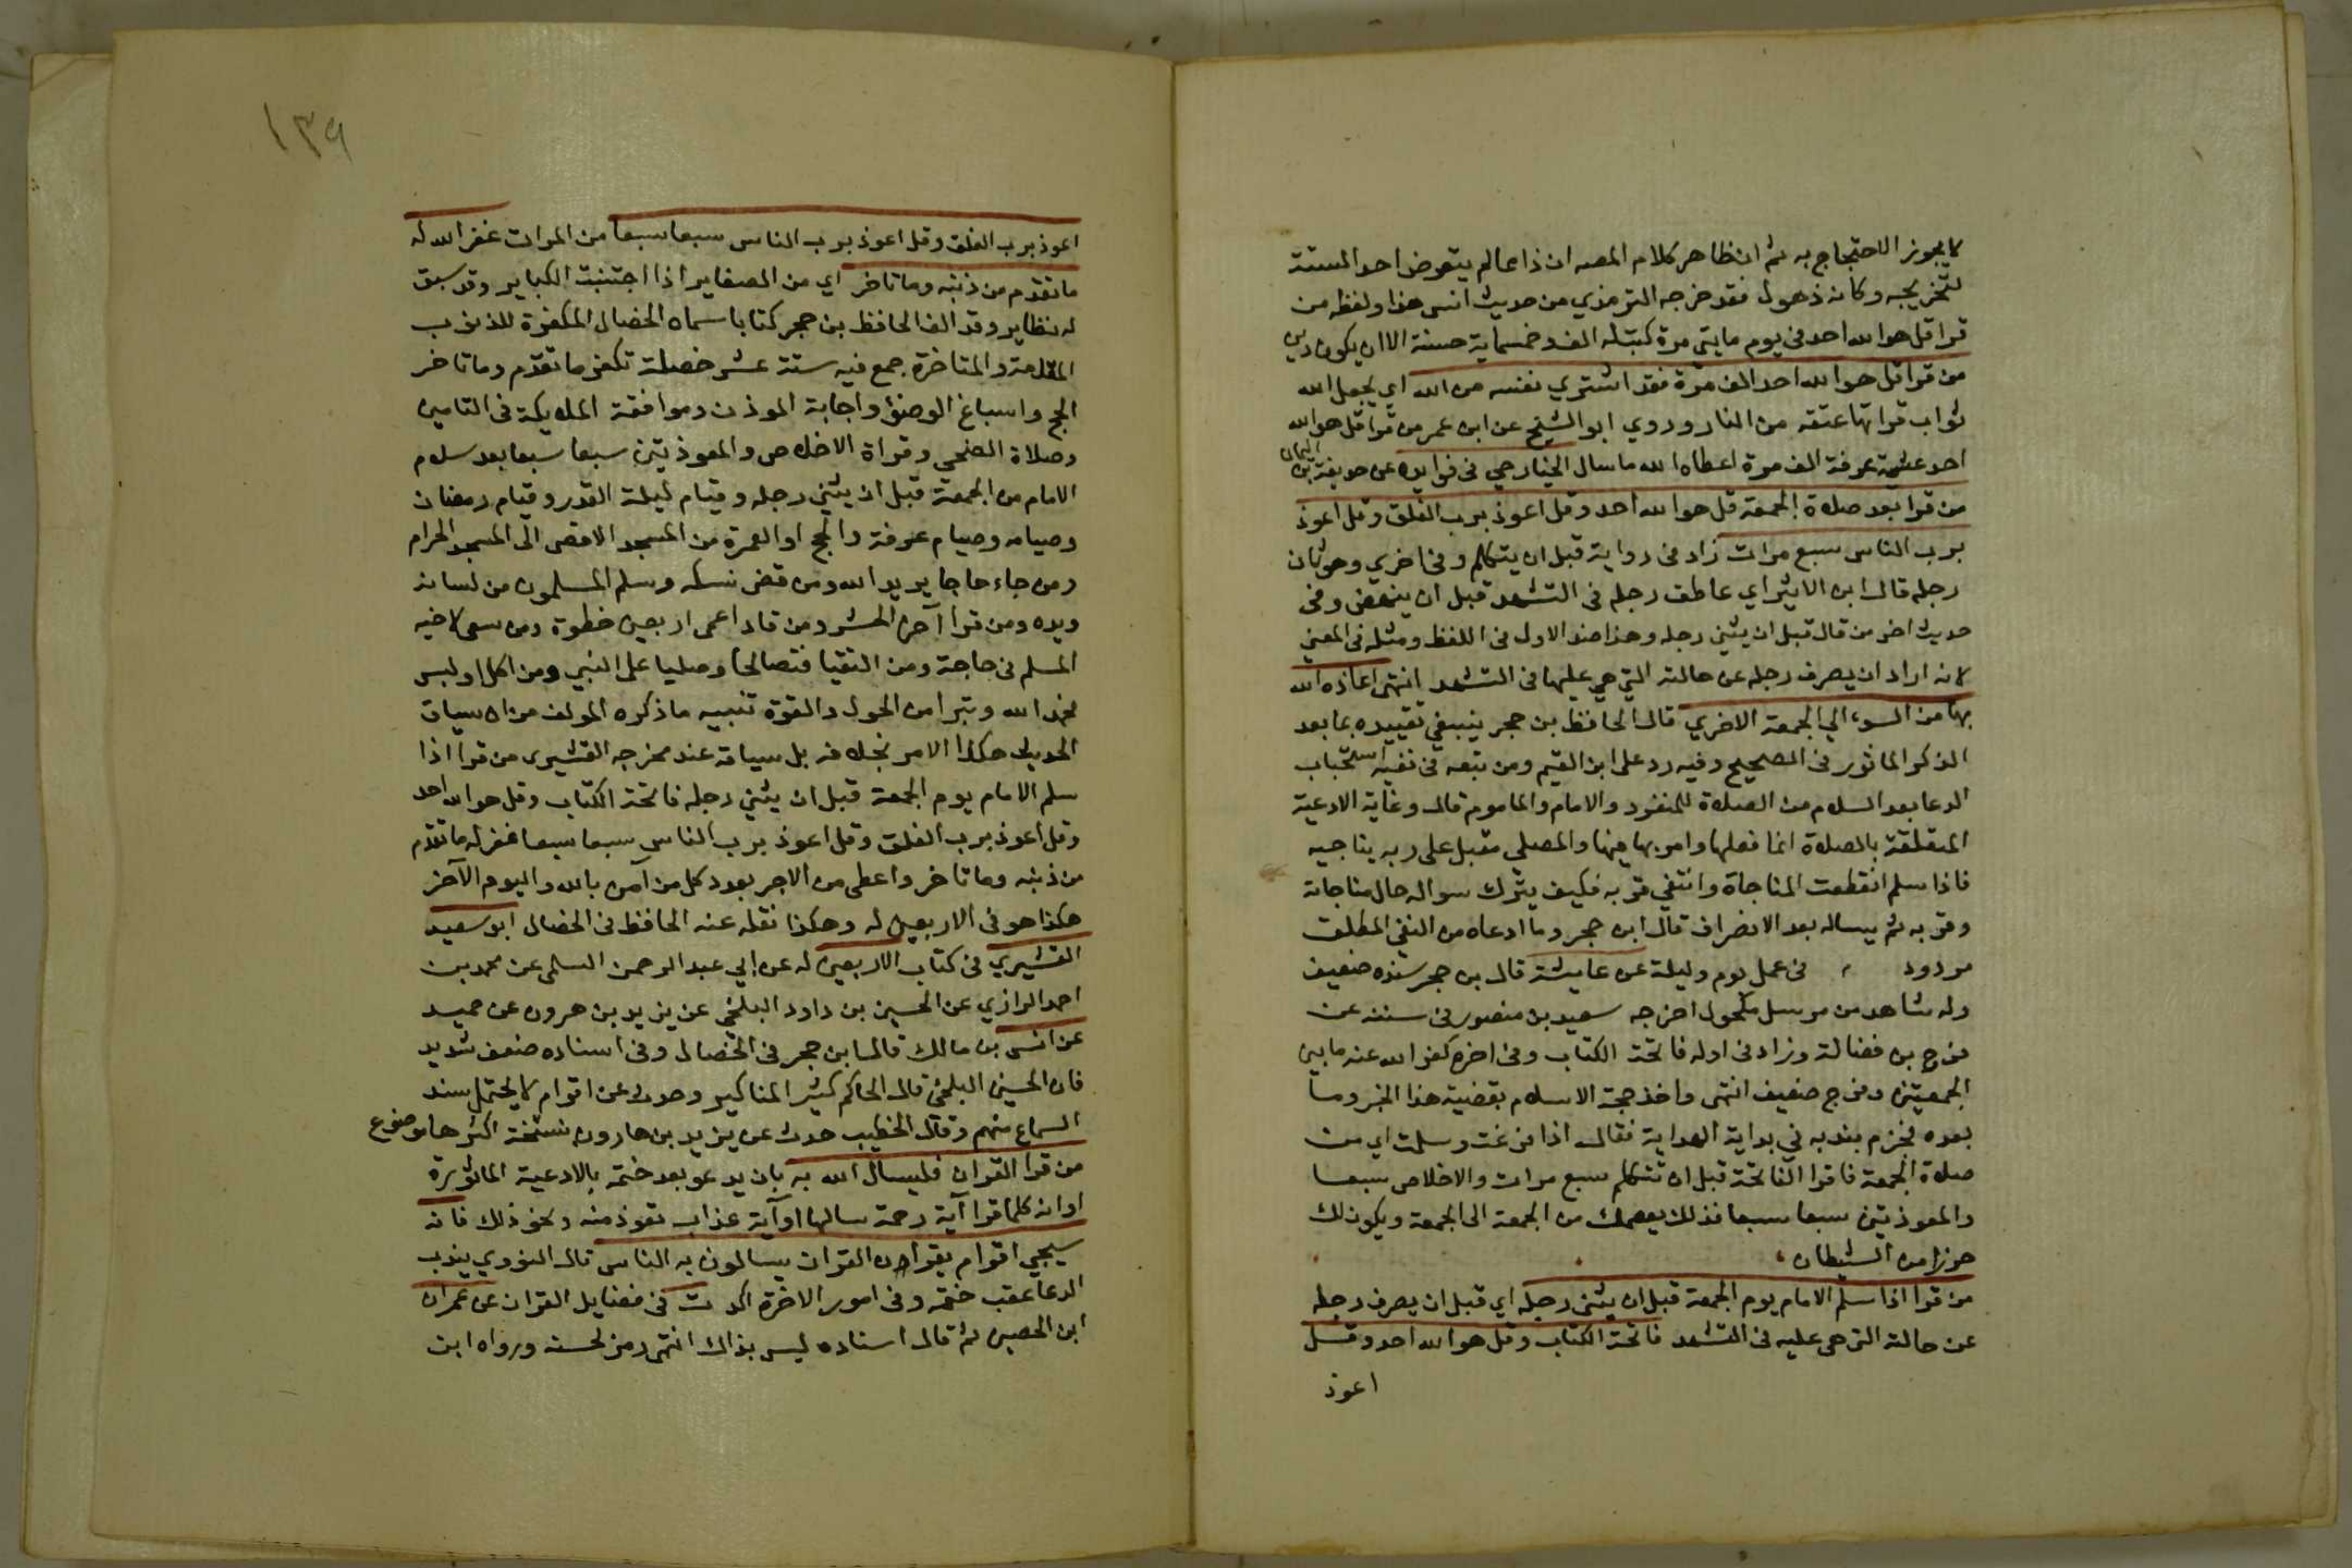 لا يجوز الاحتجاج به ثم ان ظاهر كلام المصه ان ذا مما لم يتعرض احد الستة
لتخريجه وكانه ذهول فقد خرجه الترمذي من حديث انس هذا ولفظه من
قرا قل هو الله احد في يوم مايتي مرة كتب له الف وخمسماية حسنة الا ان يكون دين
من قرا قل هو الله احد الف مرة فقد اشتري نفسه من الله اي يجعل الله
ثواب قراتها عتقه من النار وروي ابو الشيخ عن ابن عمر من قرا قل هو الله
احد عشية عرفة الف مرة اعطاه الله ما سال الخيارجي في فوايده عن حذيفة بن اليمان
من قرا بعد صلاة الجمعة قل هو الله احد وقل اعوذ برب الفلق وقل اعوذ
برب الناس سبع مرات زاد في رواية قبل ان يتكلم وفي اخري وهو ثان
رجله قال ابن الاثير اي عاطف رجله في التشهد قبل ان ينهض وفي
حديث اخر من قال قبل ان يثني رجله وهذا ضد الاول في اللفظ ومثله في المعني
لانه اراد ان يصرف رجله عن حالته التي هي عليها في التشهد انتهى اعاذه الله
بها من السوء الي الجمعة الاخري قال الحافظ بن حجر ينبغي تقييده بما بعد
الذكر الماثور في الصحيح وفيه رد على ابن القيم ومن تبعه في نفيه استحباب
الدعا بعد السلام من الصلاة للمنفرد والامام والماموم قال وغاية الادعية
المتعلقة بالصلاة انما فعلها وامر بها فيها والمصلي مقبل على ربه يناجيه
فاذا سلم انقطعت المناجاة وانتفي قربه فكيف يترك سواله حال مناجاته
وقربه ثم يساله بعد الانصراف قال ابن حجر وما ادعاه من النفي المطلق
مردود في عمل يوم وليلة عن عايشة قال بن حجر سنده ضعيف
وله شاهد من مرسل مكحول اخرجه سعيد بن منصور في سننه عن
فرج بن فضالة وزاد في اوله فاتحة الكتاب وفي اخره كفر الله عنه ما بين
الجمعتين وفرج ضعيف انتهى واخذ حجة الاسلام بقضية هذا الخبر وما
بعده فجزم بندبه في بداية الهداية فقال اذا فرغت وسلمت اي من
صلاة الجمعة فاقرا الفاتحة قبل ان تتكلم سبع مرات والاخلاص سبعا
والمعوذتين سبعا سبعا فذلك يعصمك من الجمعة الى الجمعة ويكون لك
حرزا من الشيطان
من قرا اذا سلم الامام يوم الجمعة قبل ان يثني رجله اي قبل ان يصرف رجله
عن حالته التي هي عليه في التشهد فاتحة الكتاب وقل هو الله احد وقل
اعوذ
١٣٩
اعوذ برب الفلق وقل اعوذ برب الناس سبعا سبعا من المرات غفر الله له
ما تقدم من ذنبه وما تاخر اي من الصغاير اذا اجتنبت الكباير وقد سبق
له نظاير وقد الف الحافظ بن حجر كتابا سماه الخصال المكفرة للذنوب
المقدمة والمتاخرة جمع فيه ستة عشر خصلة تكفر ما تقدم وما تاخر
الحج واسباغ الوضوء واجابة الموذن وموافقة الملايكة في التامين
وصلاة الضحي وقراة الاخلاص والمعوذتين سبعا سبعا بعد سلام
الامام من الجمعة قبل ان يثني رجله وقيام ليلة القدر وقيام رمضان
وصيامه وصيام عرفة والحج او العمرة من المسجد الاقصى الى المسجد الحرام
ومن جاء حاجا يريد الله ومن قضى نسكه وسلم المسلمون من لسانه
ويده ومن قرا آخر الحشر ومن قاد اعمى اربعين خطوة ومن سعى لاخيه
المسلم في حاجة ومن التقيا فتصالحا وصليا على النبي ومن اكل او لبس
فحمد الله وتبرا من الحول والقوة تنبيه ما ذكره المولف من ان سياق
الحديث هكذا الامر بخلافه بل سياقه عند مخرجه القشيري من قرا اذا
سلم الامام يوم الجمعة قبل ان يثني رجله فاتحة الكتاب وقل هو الله احد
وقل اعوذ برب الفلق وقل اعوذ برب الناس سبعا سبعا غفر له ما تقدم
من ذنبه وما تاخر واعطى من الاجر بعدد كل من آمن بالله واليوم الآخر
هكذا هو في الاربعين له وهكذا نقله عنه الحافظ في الخصال ابو سعيد
القشيري في كتاب الاربعين له عن ابي عبد الرحمن السلمي عن محمد بن
احمد الرازي عن الحسين بن داود البلخي عن يزيد بن هرون عن حميد
عن انس بن مالك قال ابن حجر في الخصال وفي اسناده ضعف شديد
فان الحسين البلخي قال الحاكم كثير المناكير وحدث عن اقوام لا يحتمل سنه
السماع منهم وقال الخطيب حدث عن يزيد بن هارون نسخة اكثرها موضوع
من قرا القران فليسال الله به بان يدعو بعد ختمه بالادعية الماثورة
او انه كلما قرا آية رحمة سالها او آية عذاب تعوذ منه ونحو ذلك فانه
سيجي اقوام يقراون القران يسالون به الناس قال النووي يندب
الدعا عقب ختمه وفي امور الاخرة اكد ت في فضايل القران عن عمران
ابن الحصين ثم قال اسناده ليس بذاك انتهى رمز لحسنه ورواه ابن